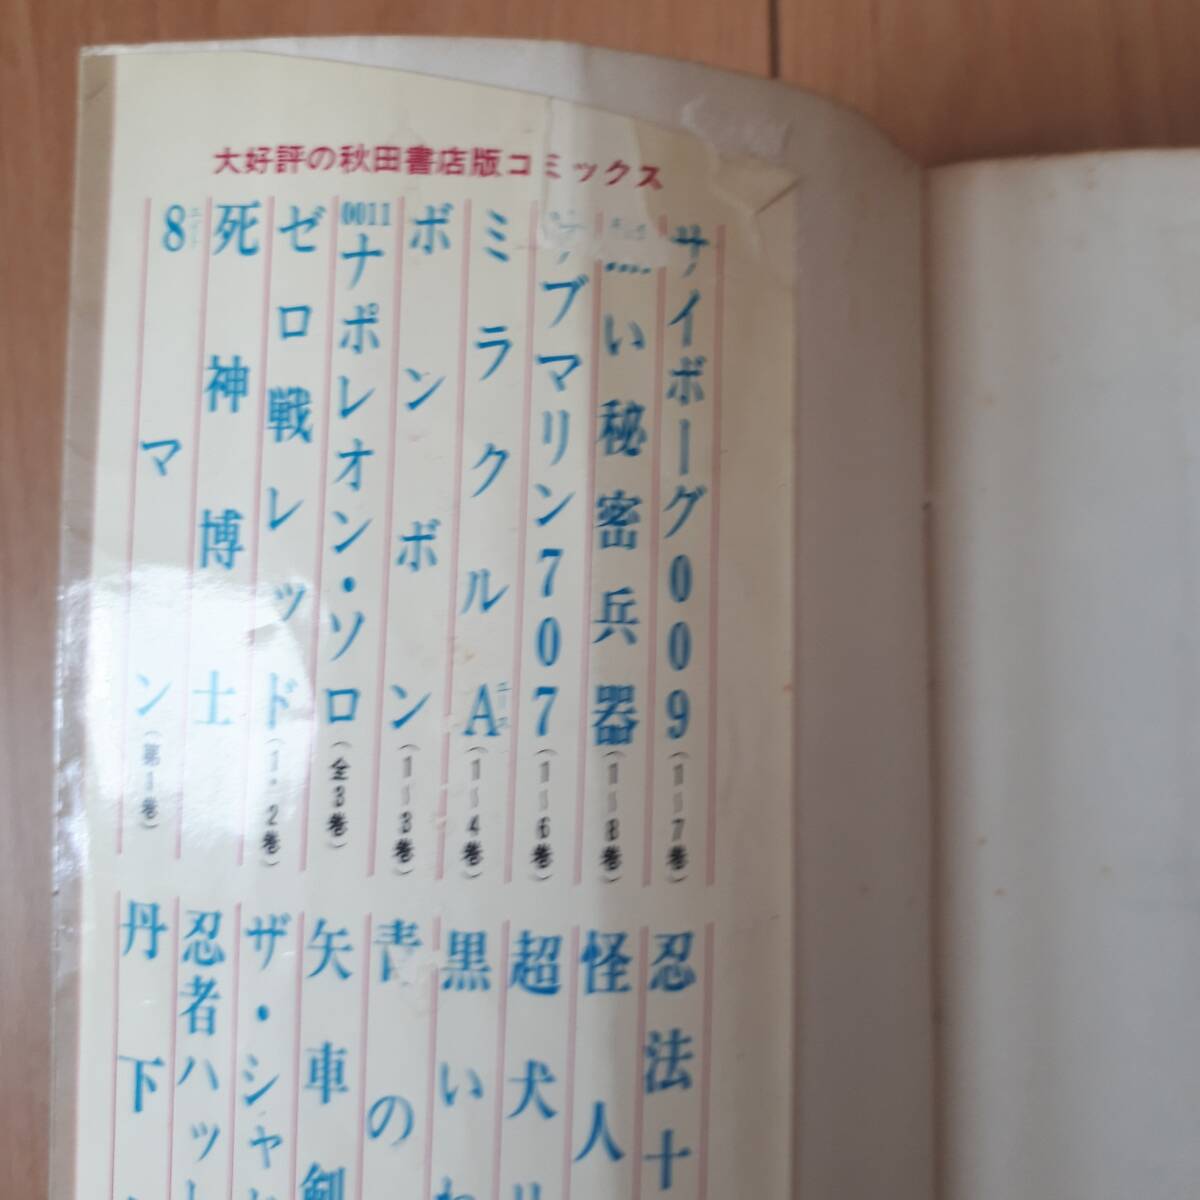 大好評の秋田書店版コミックス
サイボーグ009(1〜7巻)
い秘密兵器(1〜8巻)
サブマリン707(1〜6巻)
ミラクルA(1〜4巻)
エース
ボンボン(1〜3巻)
0011ナポレオン・ソロ(全3巻)
ゼロ戦レッド(1・2巻)
死神博士
8マン(第1巻)
エイト
忍法十
怪人
超犬リ
黒いわ
青の
矢車剣
ザ・シャ
忍者ハット
丹下